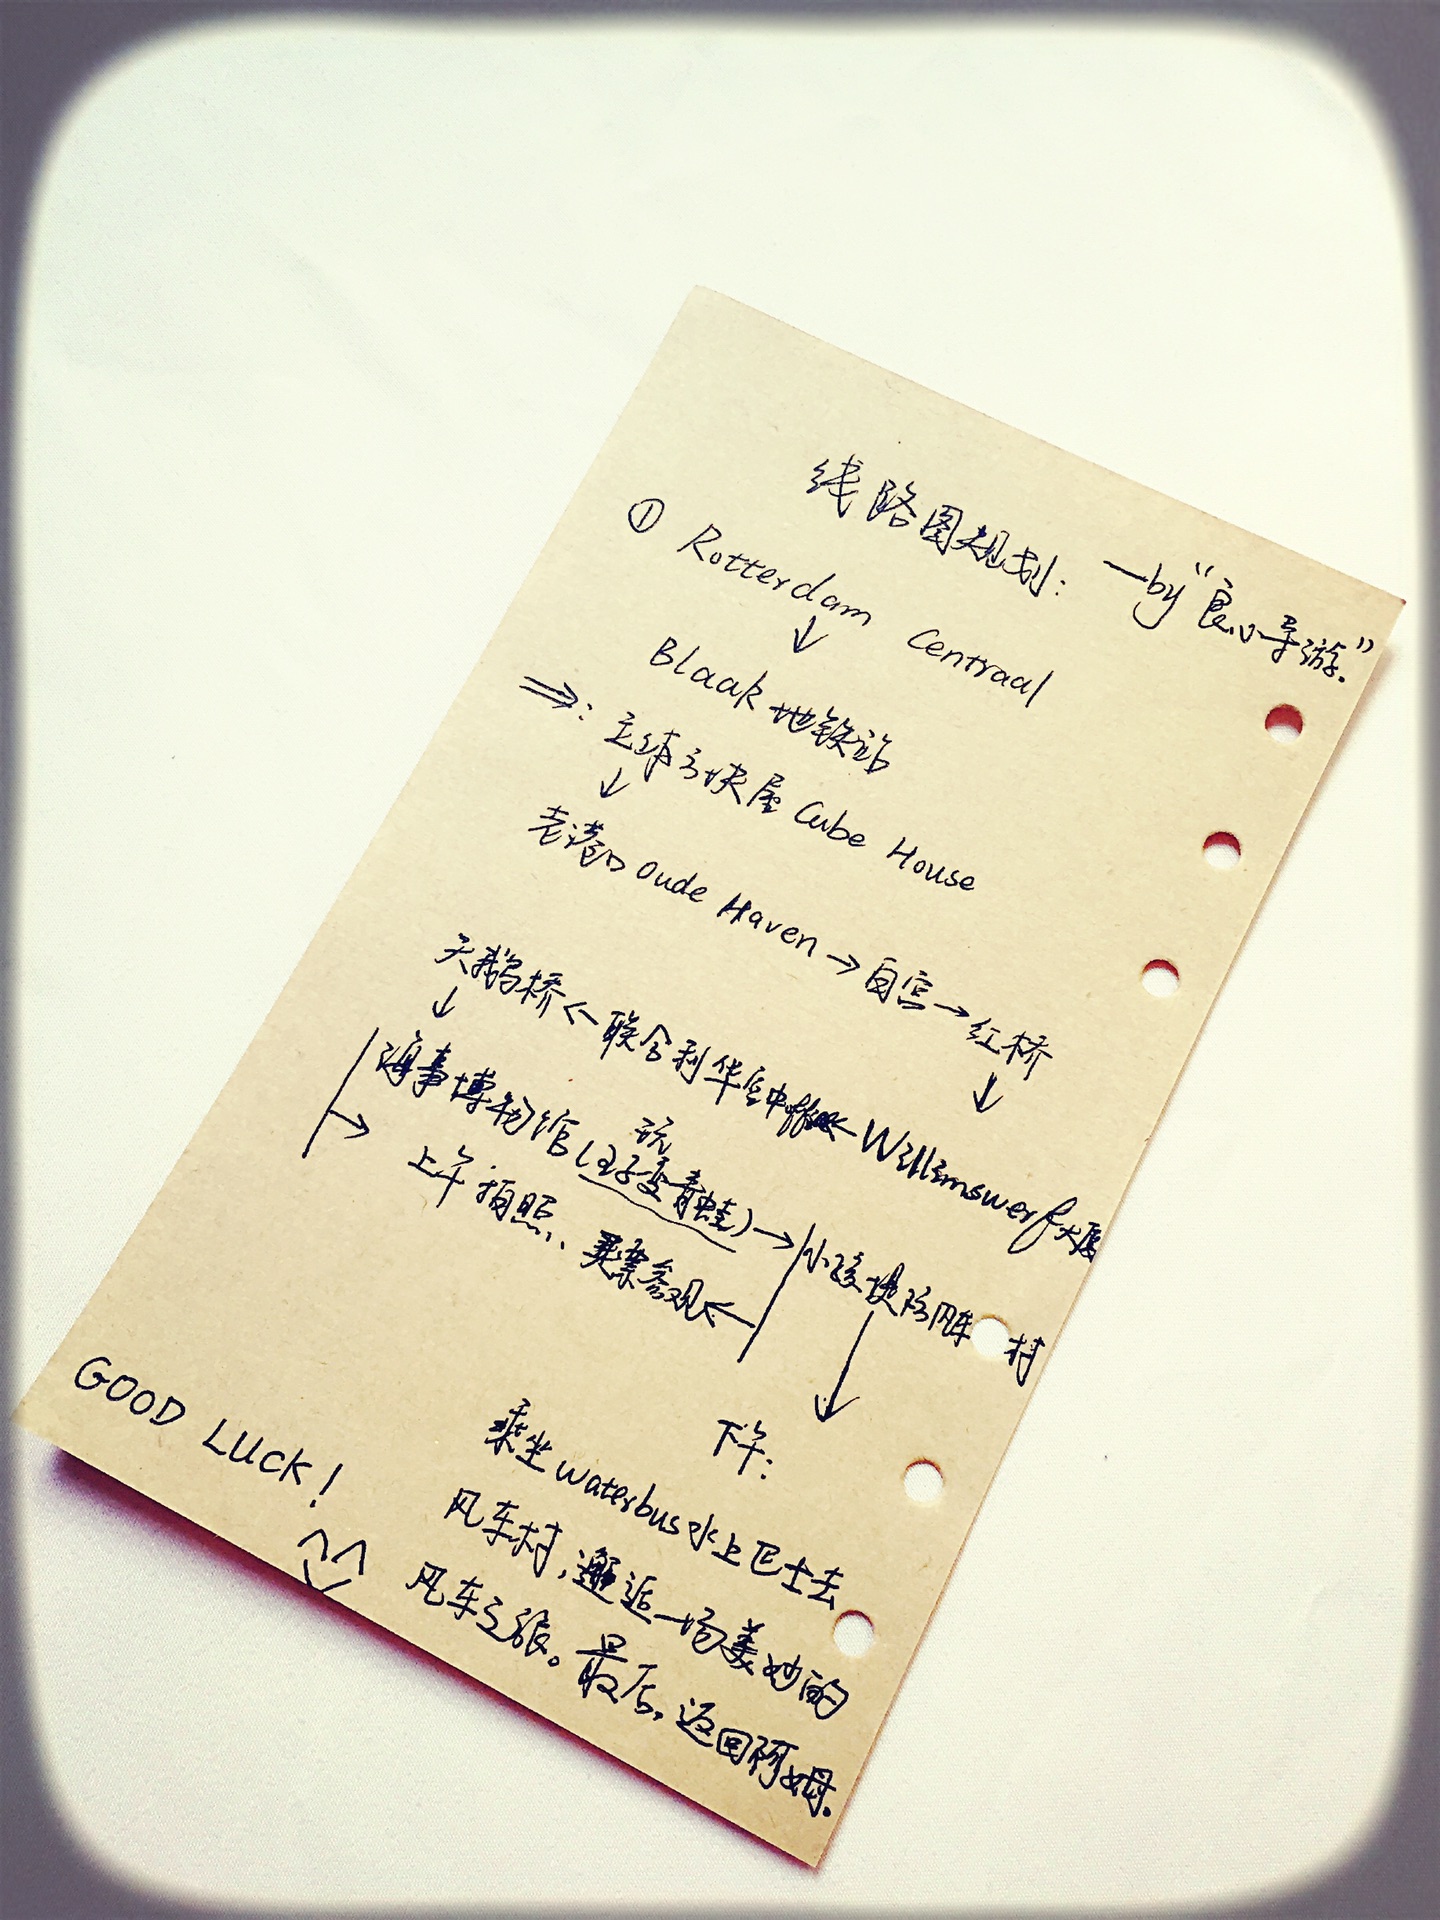 线路图规划: —by“良小导游.”
① Rotterdam Centraal
↓
Blaak 地铁站
⇒: 立体方块屋 Cube House
↓
老港口 Oude Haven → 白宫 → 红桥
↓
天鹅桥 ← 联合利华 ← Willemswerf大厦
↓
海事博物馆 (玩王子变青蛙) → 小孩堤防风车村
上午: 拍照、买票参观
下午:
乘坐waterbus水上巴士去
风车村,邂逅一场美妙的
风车之旅。最后,返回阿姆.
GOOD LUCK!